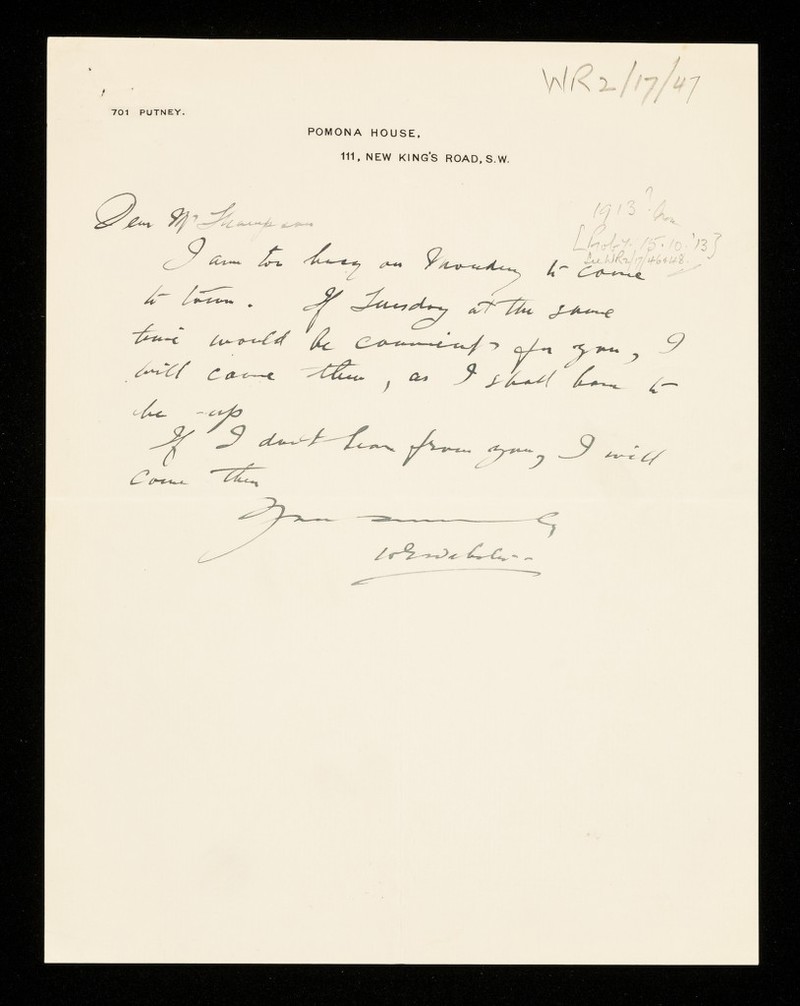 WR2/17/47
701 PUTNEY.
POMONA HOUSE,
111, NEW KING'S ROAD, S.W.
1913?
[Proby. 15.10.'13]
Dear Mr Thompson
I am too busy on Monday to come
to town. If Tuesday at the same
time would be convenient for you, I
will come then, as I shall have to
be up
If I don't hear from you, I will
come then
Yours sincerely